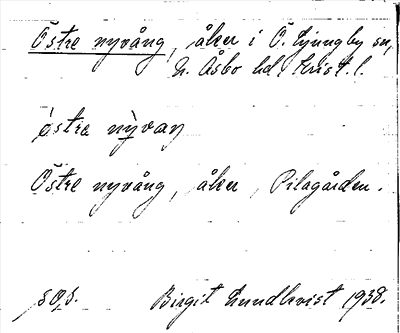 Östre nyvång, åker i Ö. Ljungby sn,
N. Åsbo hd. Krist. l.
östrə nỳvaŋ
Östre nyvång, åker, Pilagården.
s. 0, s. Birgit Lundkvist 1938.